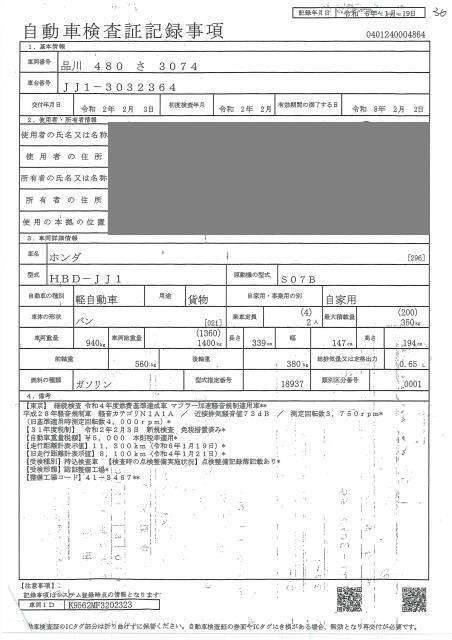 記録年月日 令和 6年 1月 19日
30
自動車検査証記録事項
0401240004864
1. 基本情報
車両番号 品川 480 さ 3074
車台番号 JJ1-3032364
交付年月日 令和 2年 2月 3日 初度検査年月 令和 2年 2月 有効期間の満了する日 令和 8年 2月 2日
2. 使用者・所有者情報
使用者の氏名又は名称
使用者の住所
所有者の氏名又は名称
所有者の住所
使用の本拠の位置
3. 車両詳細情報
車名 ホンダ [296]
型式 HBD-JJ1 原動機の型式 S07B
自動車の種別 軽自動車 用途 貨物 自家用・事業用の別 自家用
車体の形状 バン [021] 乗車定員 (4) 2人 最大積載量 (200) 350kg
車両重量 940kg 車両総重量 (1360) 1400kg 長さ 339cm 幅 147cm 高さ 194cm
前軸重 560kg 後軸重 380kg 総排気量又は定格出力 0.65 L
燃料の種類 ガソリン 型式指定番号 18937 類別区分番号 0001
4. 備考
【東京】 継続検査 令和4年度燃費基準達成車 マフラー加速騒音規制適用車**
平成28年騒音規制車 騒音カテゴリN1A1A / 近接排気騒音値73dB / 測定回転数3,750rpm*
(旧基準適用時測定回転数4,000rpm)*
【31年度税制】 令和2年2月3日 新規検査 免税措置済み*
【自動車重量税額】 ¥5,000 本則税率適用*
【走行距離計表示値】 11,300km (令和6年1月19日)*
【旧走行距離計表示値】 8,100km (令和4年1月21日)*
【受検種別】 持込検査車 【検査時の点検整備実施状況】 点検整備記録簿記載あり*
【受検形態】 認証整備工場*
【整備工場コード】 41-3467**
【注意事項】
記録事項はシステム登録時点の情報となります
車両ID K9562MF3202323
自動車検査証のICタグ部分は折り曲げずに保管ください。自動車検査証の券面やICタグにき損がある場合、無効となり再交付が必要です。